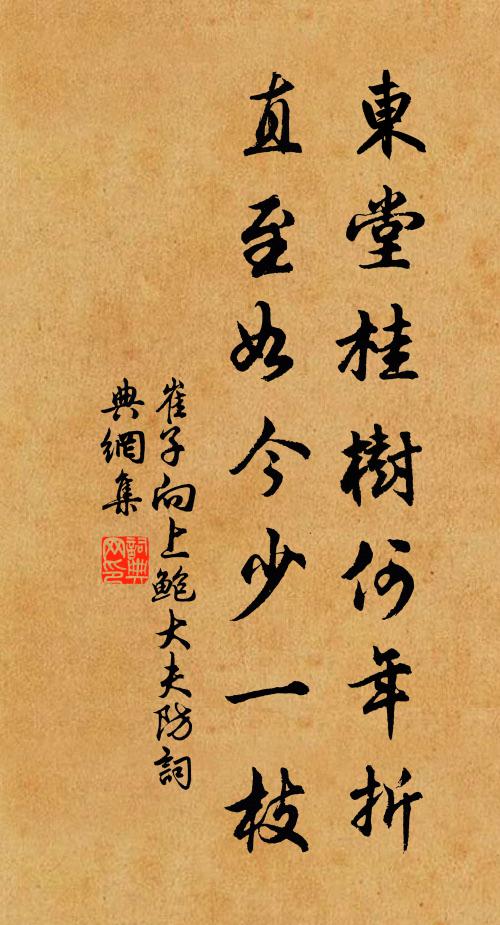 東堂桂樹何年折
直至如今少一枝
崔子向上鮑大夫防詞
典網集
詞典網印